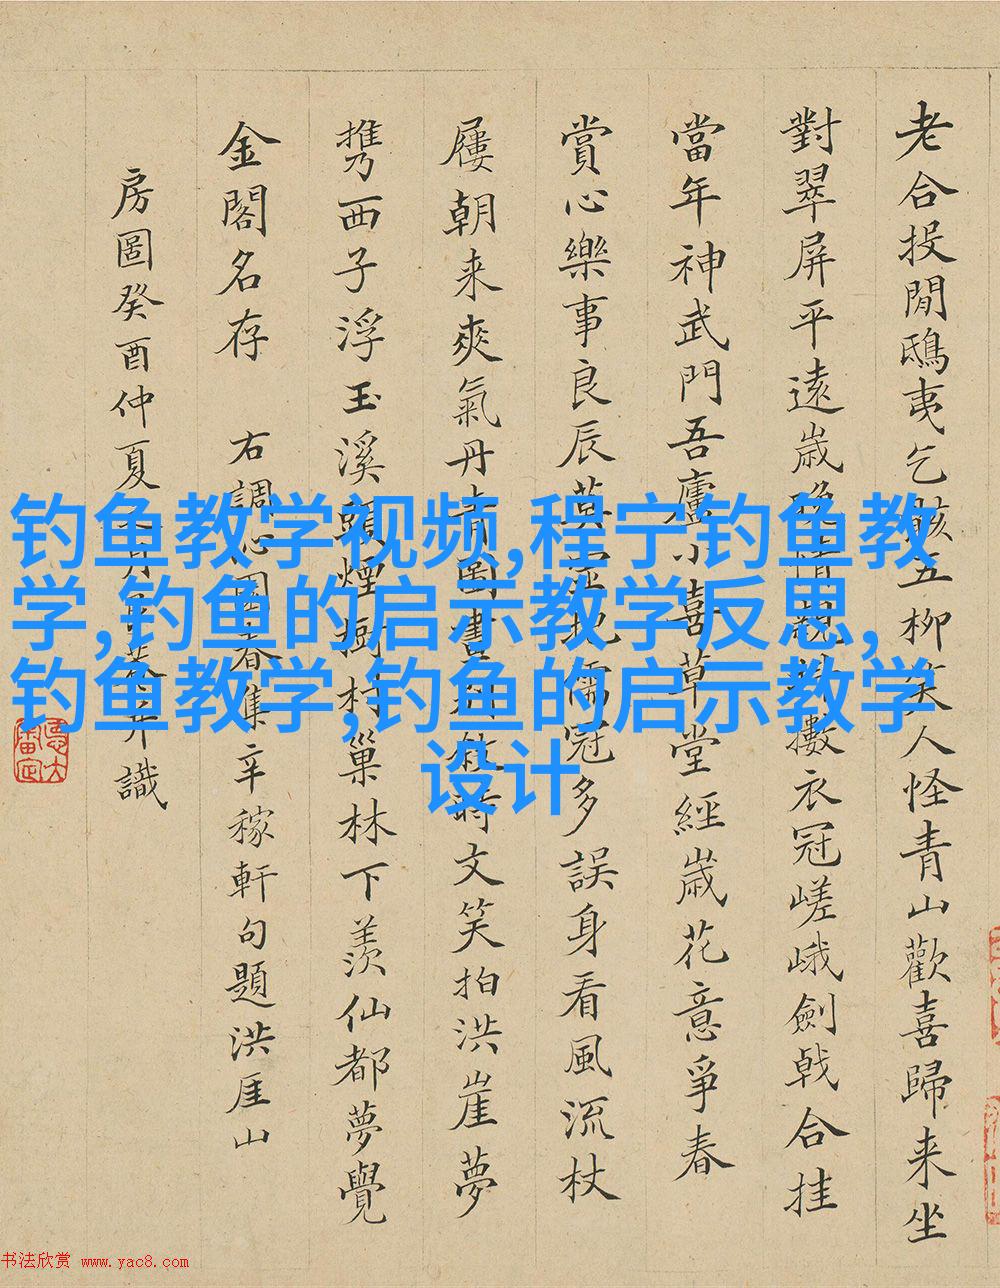 老合投閒鴟夷乞骸五柳笑人怪青山歡喜歸来坐
對翠屏平遠歲晚情親衣冠嵯峨劍戟合挂
當年神武門吾廬小喜草堂經歲花意爭春
賞心樂事良辰莫儒冠多誤身看風流杖
屨朝来爽氣丹青圖畫文笑拍洪崖夢
攜西子浮玉溪頭煙樹村巢林下羨仙都夢覺
金閣名存 右調沁園春集辛稼軒句題洪厓山
房圖癸酉仲夏識
钓鱼教学视频,程宁钓鱼教
学,钓鱼的启示教学反思,
钓鱼教学,钓鱼的启示教学
设计
书法欣赏 www.yac8.com